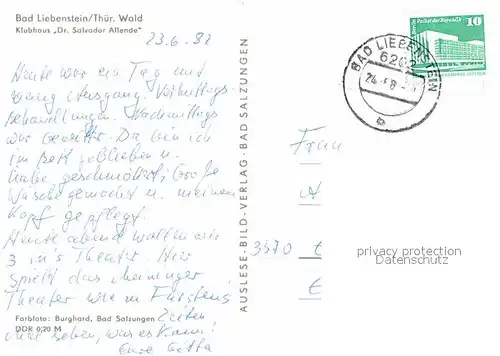 Bad Liebenstein/Thür. Wald
Klubhaus „Dr. Salvador Allende"
23.6.82
Heute war ein Tag mit
wenig Ausgang. Vormittags
Behandlungen. Nachmittags
war Gewitter. Da bin ich
im Bett geblieben u.
habe geschmökert, Große
Wäsche gemacht u. meinen
Kopf gepflegt.
Heute abend wollen wir
3 in's Theater. Hier
spielt das Meininger
Theater wie in Fürstens
Zeiten
Mal sehen, was es kann!
Eure
Farbfoto: Burghard, Bad Salzungen
DDR 0,20 M
AUSLESE-BILD-VERLAG-BAD SALZUNGEN
BAD LIEBENSTEIN
6202
b
10
Palast der Republik
Frau
A
3370
privacy protection
Datenschutz